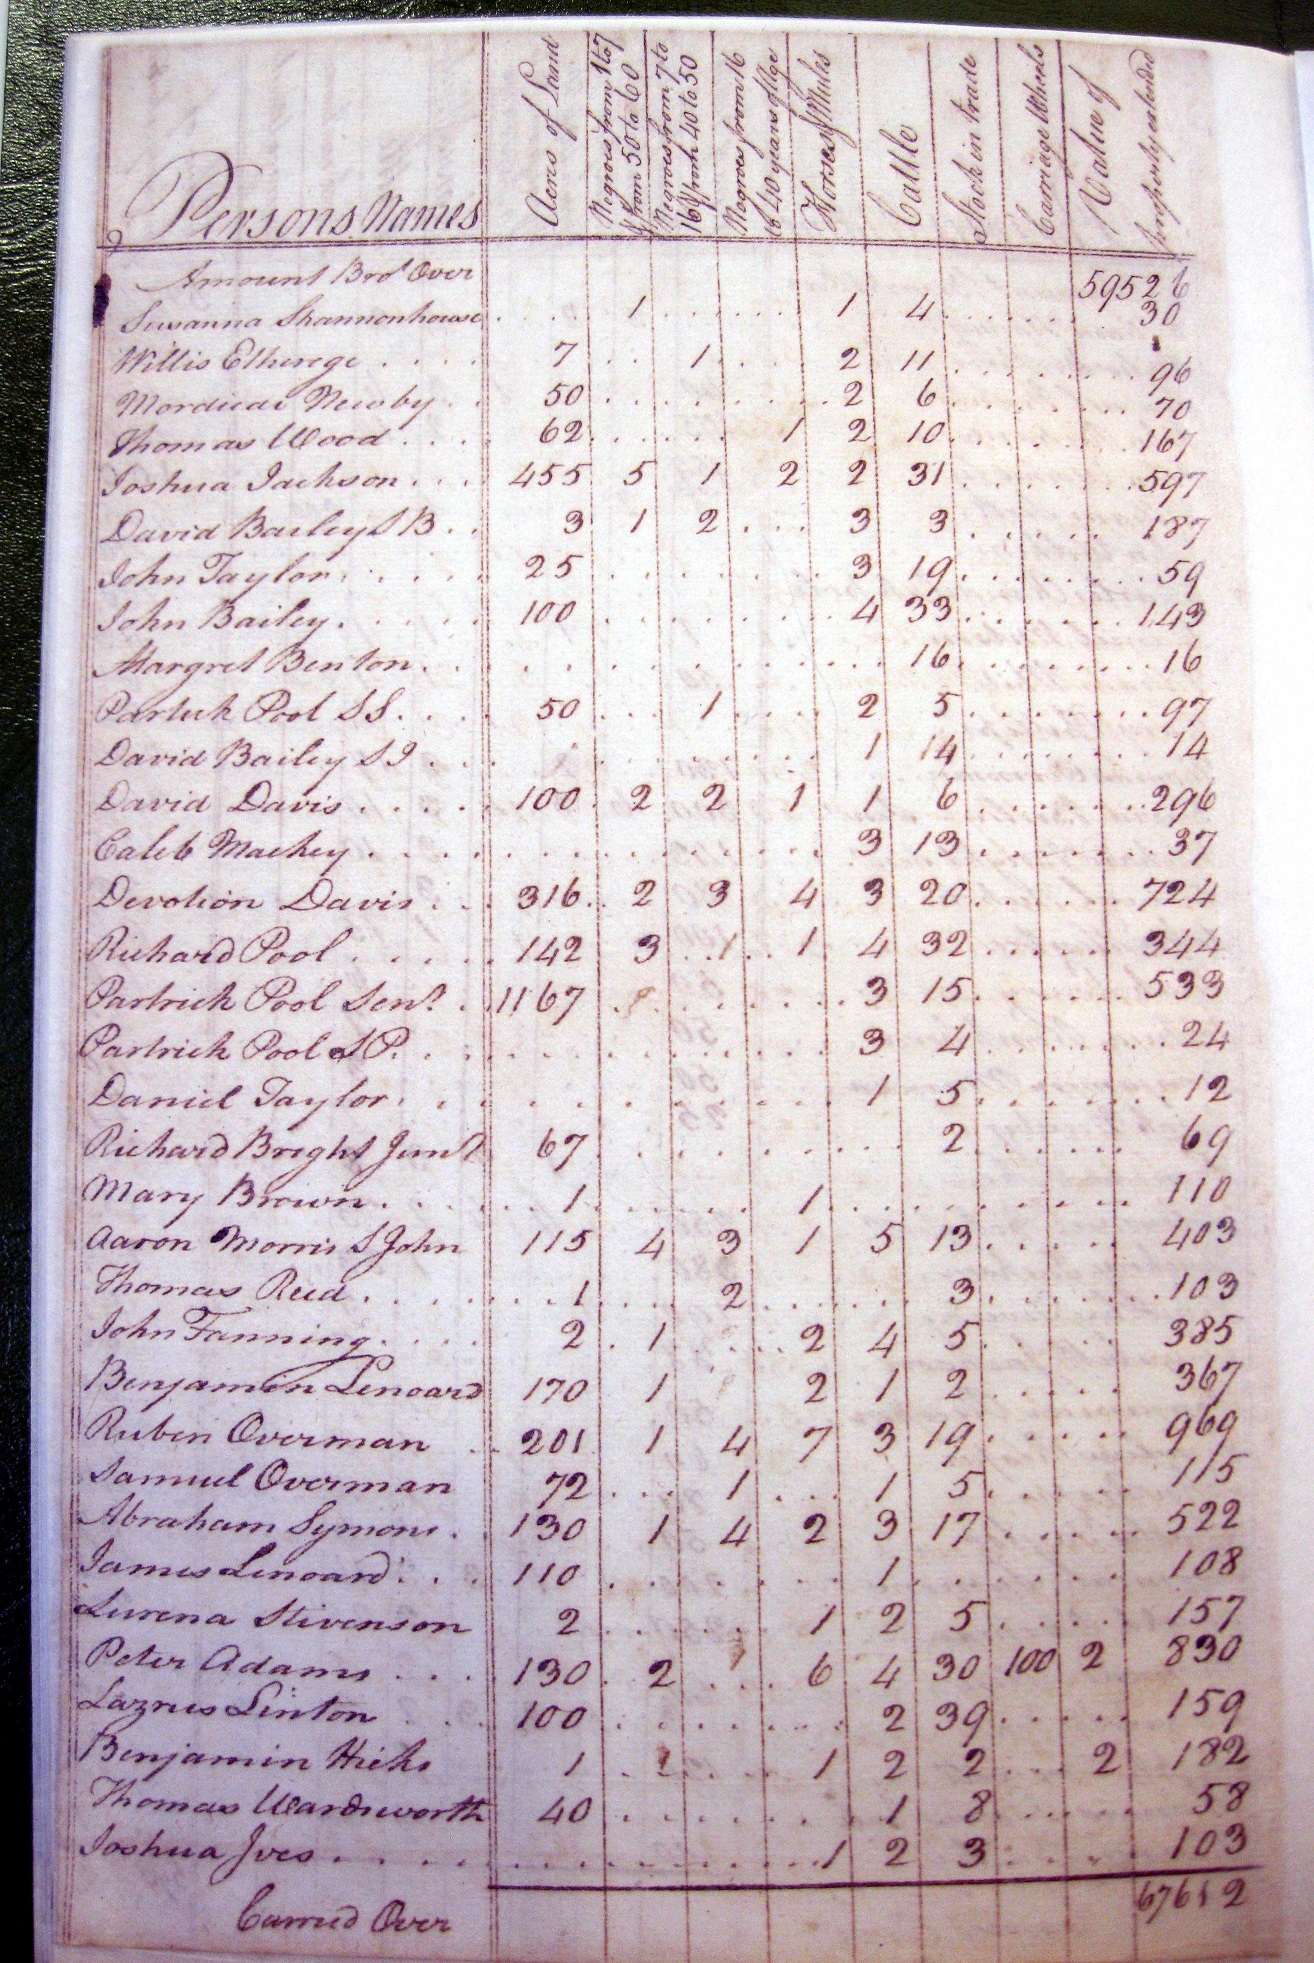 Persons Names | Acres of Land | Negroes from 1 to 7 & from 50 to 60 | Negroes from 7 to 16 & from 40 to 50 | Negroes from 16 to 40 years of Age | Horses & Mules | Cattle | Stock in trade | Carriage Wheels | Value of property extended
Amount Bro.t Over 59526
Susanna Shannonhouse 1 1 4 30
Willis Etherege 7 1 2 11 96
Mordicai Newby 50 2 6 70
Thomas Wood 62 1 2 10 167
Joshua Jackson 455 5 1 2 2 31 597
David Bailey S B 3 1 2 3 3 187
John Taylor 25 3 19 59
John Bailey 100 4 33 143
Margret Benton 16 16
Partick Pool S S 50 1 2 5 97
David Bailey S J 1 14 14
David Davis 100 2 2 1 1 6 296
Caleb Mackey 3 13 37
Devotion Davis 316 2 3 4 3 20 724
Richard Pool 142 3 1 1 4 32 344
Partrick Pool Senr. 1167 3 15 533
Partrick Pool S P. 3 4 24
Daniel Taylor 1 5 12
Richard Bright Junr 67 2 69
Mary Brown 1 1 110
Aaron Morris S John 115 4 3 1 5 13 403
Thomas Reed 1 2 3 103
John Fanning 2 1 2 4 5 385
Benjamin Lenoard 170 1 2 1 2 367
Ruben Overman 201 1 4 7 3 19 969
Samuel Overman 72 1 1 5 115
Abraham Symons 130 1 4 2 3 17 522
James Lenoard 110 1 108
Lurena Stivenson 2 1 2 5 157
Peter Adams 130 2 6 4 30 100 2 830
Lazrus Linton 100 2 39 159
Benjamin Hicks 1 1 1 2 2 2 182
Thomas Wardsworth 40 1 8 58
Joshua Jves 1 2 3 103
Carried Over 67612